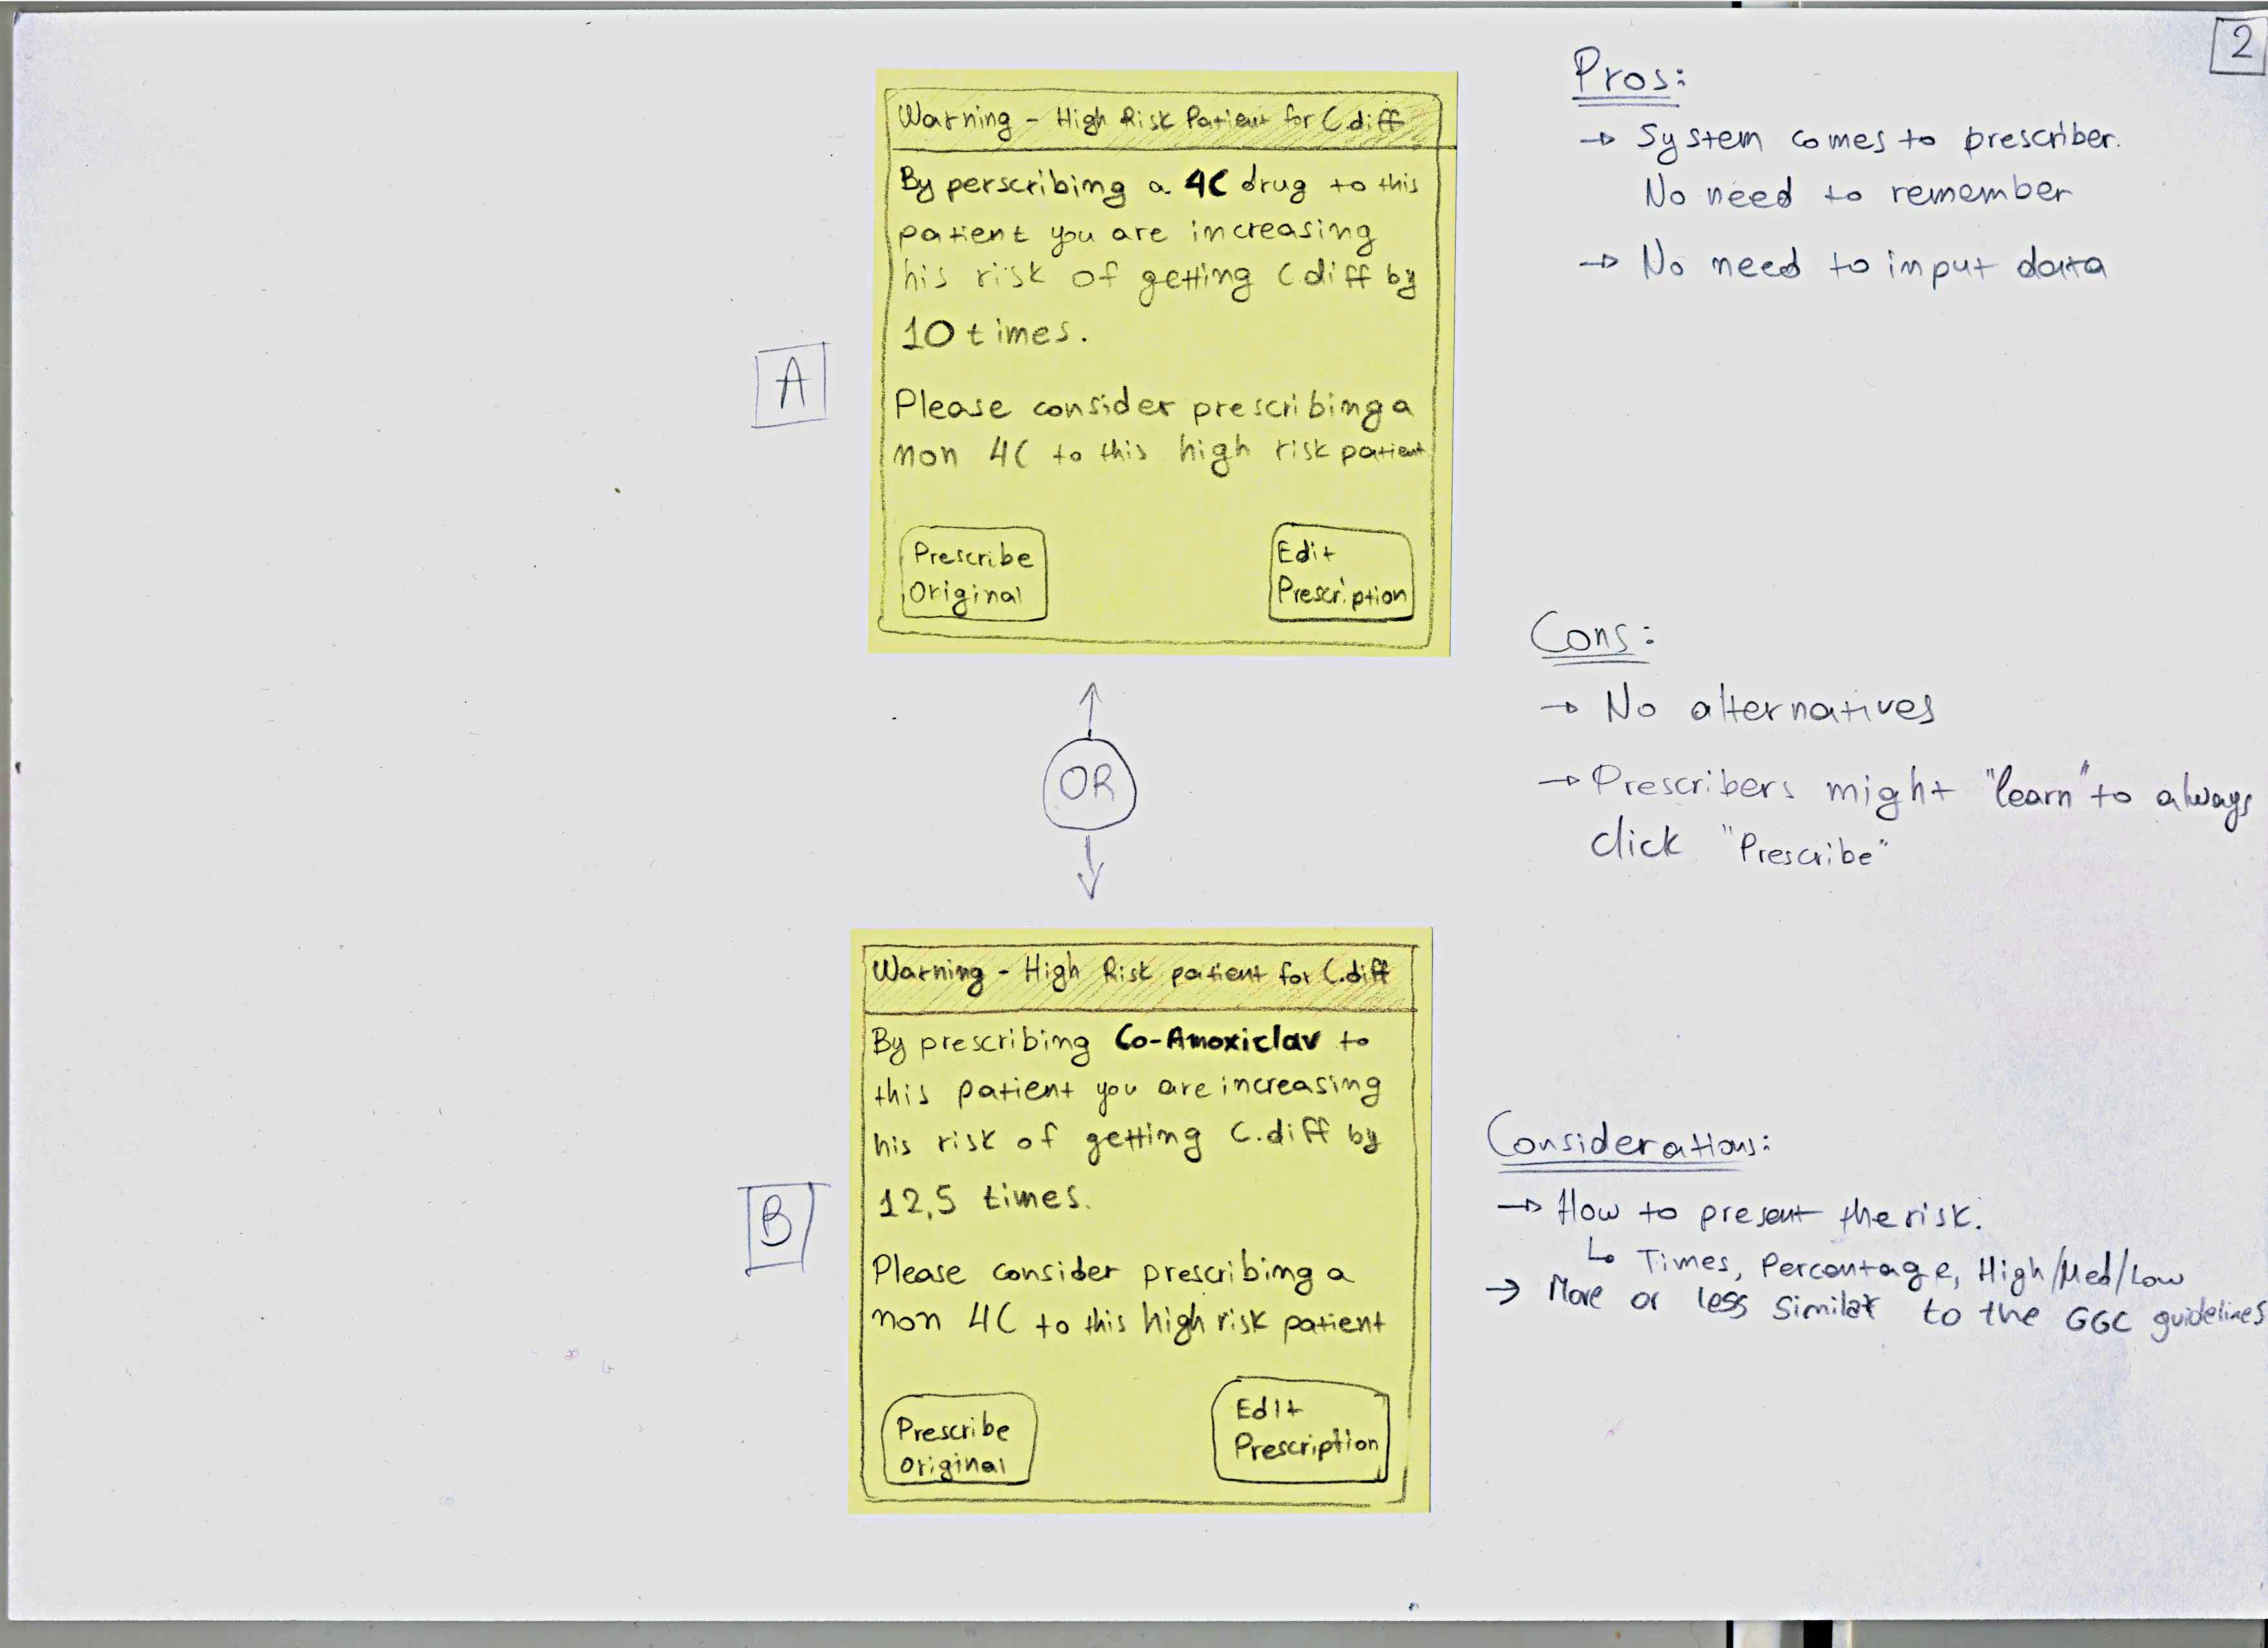 2
Warning - High Risk Patient for C.diff
By perscribing a 4C drug to this
patient you are increasing
his risk of getting C.diff by
10 times.
Please consider prescribing a
non 4C to this high risk patient
Prescribe
Original
Edit
Prescription
A
OR
B
Warning - High Risk patient for C.diff
By prescribing Co-Amoxiclav to
this patient you are increasing
his risk of getting C.diff by
12,5 times.
Please consider prescribing a
non 4C to this high risk patient
Prescribe
original
Edit
Prescription
Pros:
→ System comes to prescriber.
No need to remember
→ No need to input data
Cons:
→ No alternatives
→ Prescribers might "learn" to always
click "Prescribe"
Considerations:
→ How to present the risk.
↳ Times, Percentage, High/Med/Low
→ More or less similar to the GGC guidelines